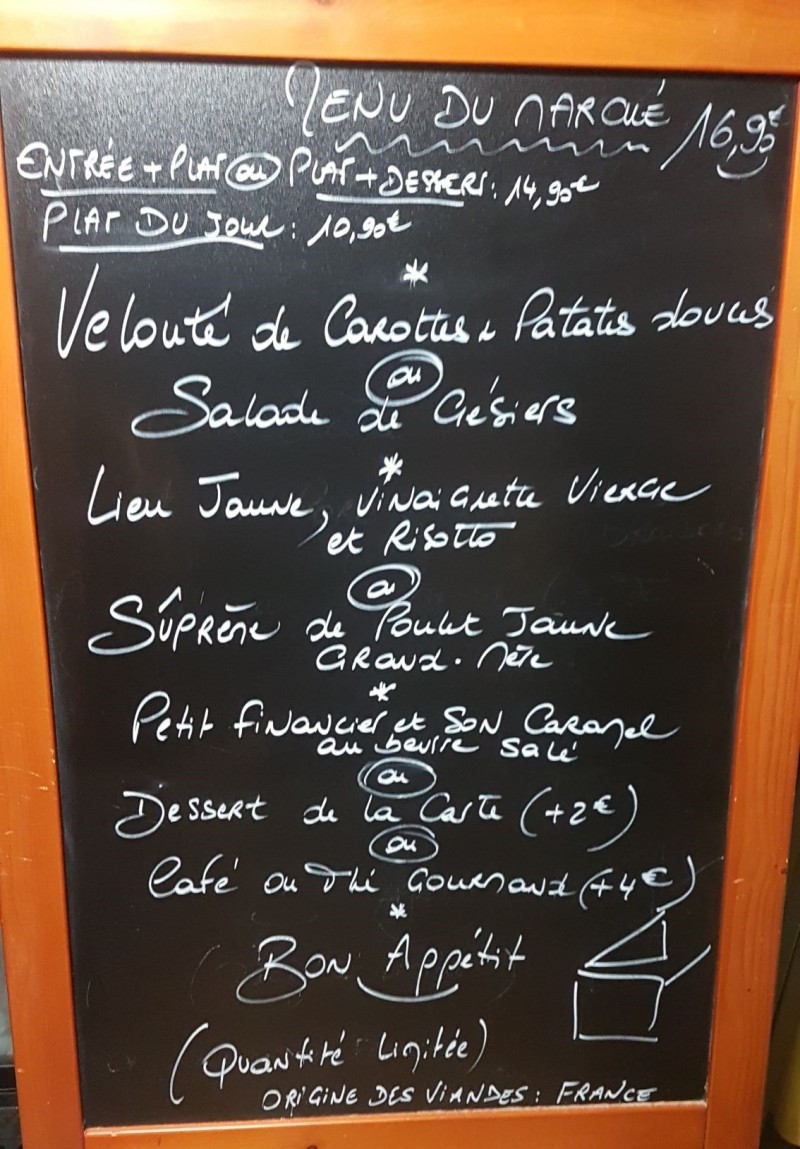 MENU DU MARCHÉ 16,90€
ENTRÉE + PLAT ou PLAT + DESSERT : 14,90€
PLAT DU JOUR : 10,90€
*
Velouté de Carottes & Patates douces
ou
Salade de Gésiers
*
Lieu Jaune, Vinaigrette Vierge
et Risotto
ou
Sûprême de Poulet Jaune
Grand-Mère
*
Petit financier et son Caramel
au beurre salé
ou
Dessert de la Carte (+2€)
ou
Café ou Thé Gourmand (+4€)
*
Bon Appétit
(Quantité Limitée)
ORIGINE DES VIANDES : FRANCE